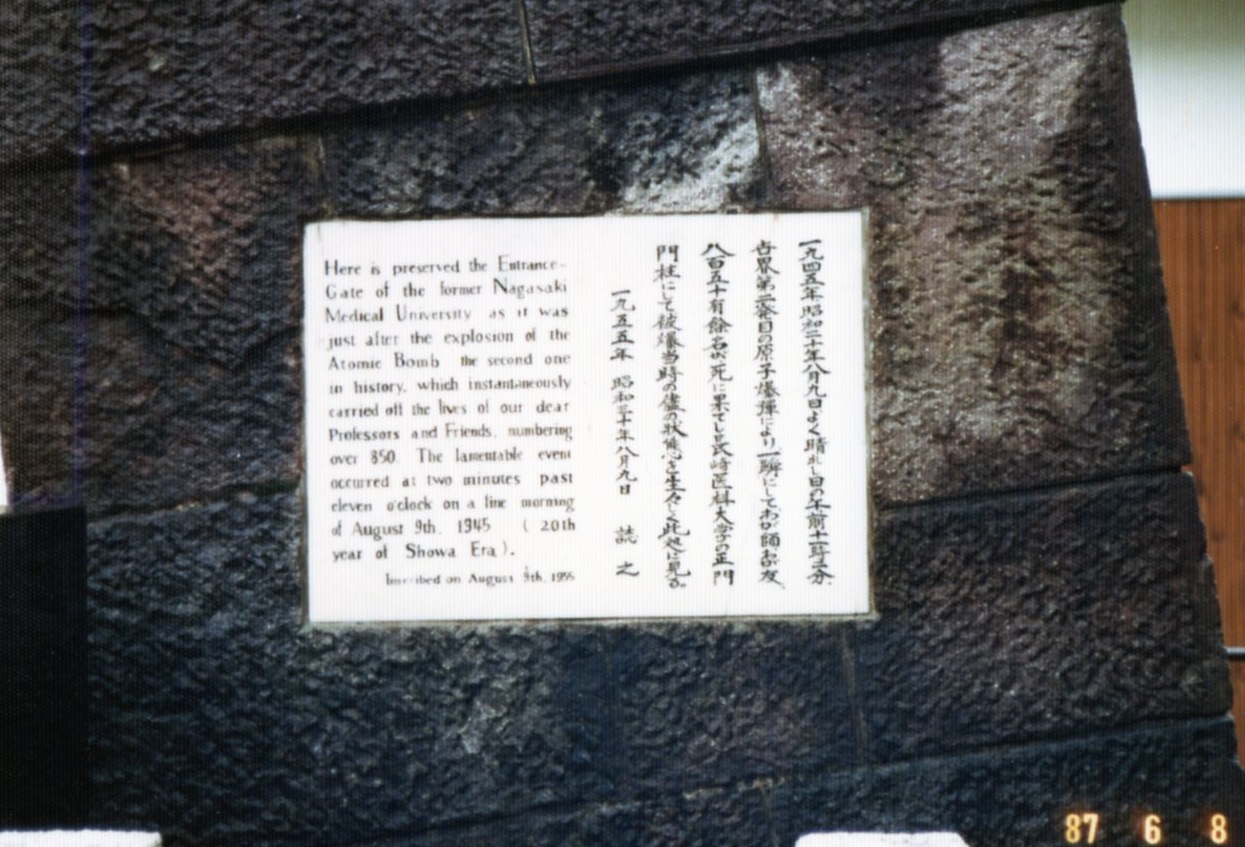 Here is preserved the Entrance-
Gate of the former Nagasaki
Medical University as it was
just after the explosion of the
Atomic Bomb the second one
in history, which instantaneously
carried off the lives of our dear
Professors and Friends, numbering
over 850. The lamentable event
occurred at two minutes past
eleven o'clock on a fine morning
of August 9th, 1945 ( 20th
year of Showa Era ).
Inscribed on August 9th, 1955
一九四五年昭和二十年八月九日よく晴れし日の午前十一時二分、
世界第二発目の原子爆弾により一瞬にしてわが師わが友
八百五十有餘名が死に果てし長崎医科大学の正門
門柱にして被爆当時の儘の状態を生々しく此処に見る。
一九五五年 昭和三十年八月九日 誌之
87 6 8